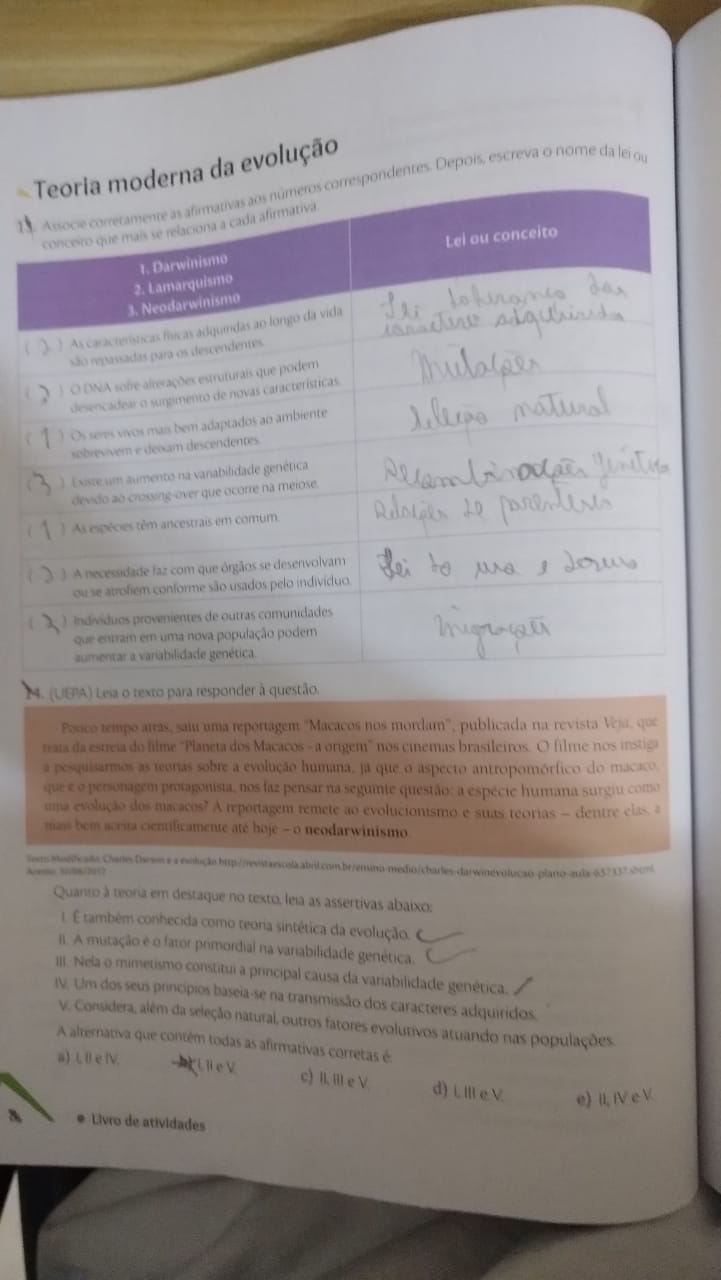 Teoria moderna da evolução
13. Associe corretamente as afirmativas aos números correspondentes. Depois, escreva o nome da lei ou
conceito que mais se relaciona a cada afirmativa.
1. Darwinismo
2. Lamarquismo
3. Neodarwinismo
Lei ou conceito
( 2 ) As características físicas adquiridas ao longo da vida
são repassadas para os descendentes.
Lei das
caractere adquirida
( 3 ) O DNA sofre alterações estruturais que podem
desencadear o surgimento de novas características.
Mutações
( 1 ) Os seres vivos mais bem adaptados ao ambiente
sobrevivem e deixam descendentes.
seleção natural
( 3 ) Existe um aumento na variabilidade genética
devido ao crossing-over que ocorre na meiose.
Recombinações genética
( 1 ) As espécies têm ancestrais em comum.
Relações de parentesco
( 2 ) A necessidade faz com que órgãos se desenvolvam
ou se atrofiem conforme são usados pelo indivíduo.
Lei do uso e desuso
( 3 ) Indivíduos provenientes de outras comunidades
que entram em uma nova população podem
aumentar a variabilidade genética.
migrações
14. (UEPA) Leia o texto para responder à questão.
Pouco tempo atrás, saiu uma reportagem "Macacos nos mordam", publicada na revista Veja, que
trata da estreia do filme "Planeta dos Macacos - a origem" nos cinemas brasileiros. O filme nos instiga
a pesquisarmos as teorias sobre a evolução humana, já que o aspecto antropomórfico do macaco,
que é o personagem protagonista, nos faz pensar na seguinte questão: a espécie humana surgiu como
uma evolução dos macacos? A reportagem remete ao evolucionismo e suas teorias – dentre elas, a
mais bem aceita cientificamente até hoje – o neodarwinismo.
Texto Modificado: Charles Darwin e a evolução http://revistaescola.abril.com.br/ensino-medio/charles-darwinevolucao-plano-aula-637337.shtml
Acesso: 30/08/2012
Quanto à teoria em destaque no texto, leia as assertivas abaixo:
I. É também conhecida como teoria sintética da evolução.
II. A mutação é o fator primordial na variabilidade genética.
III. Nela o mimetismo constitui a principal causa da variabilidade genética.
IV. Um dos seus princípios baseia-se na transmissão dos caracteres adquiridos.
V. Considera, além da seleção natural, outros fatores evolutivos atuando nas populações.
A alternativa que contém todas as afirmativas corretas é:
a) I, II e IV.
b) I, II e V.
c) II, III e V.
d) I, III e V.
e) II, IV e V.
Livro de atividades